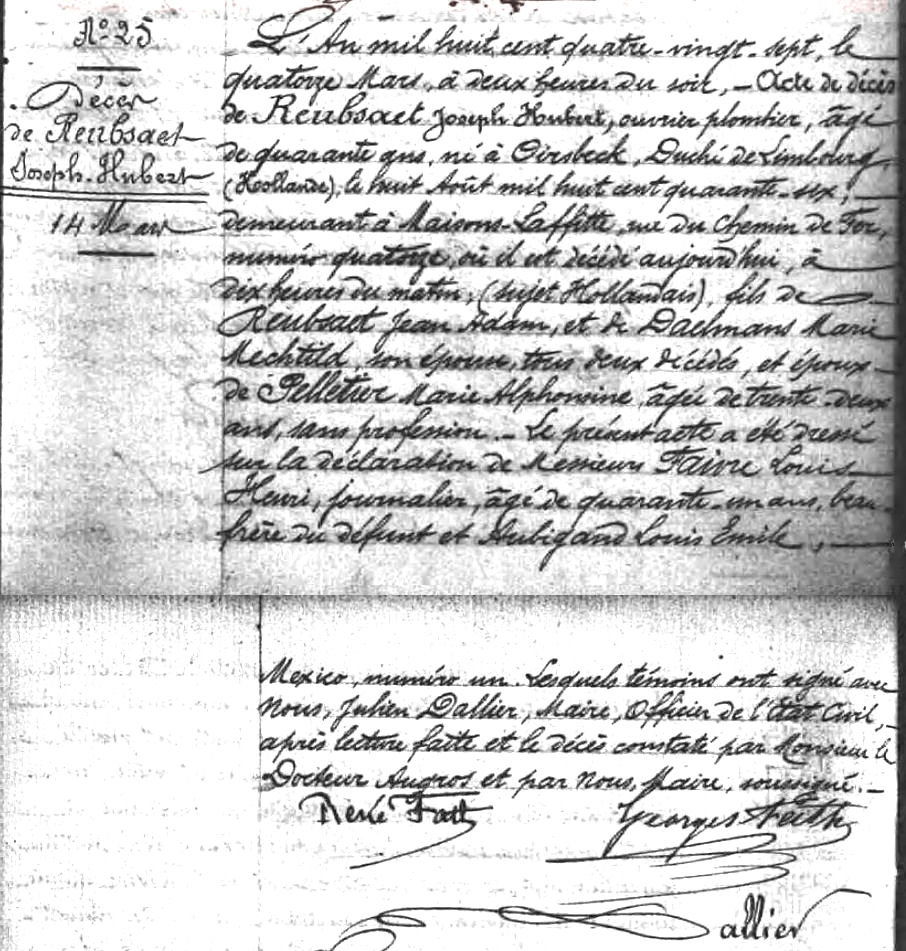 No 25
Décès
de Reubsaet
Joseph-Hubert
14 Mars
L'An mil huit cent quatre-vingt-sept, le
quatorze Mars, à deux heures du soir, — Acte de décès
de Reubsaet Joseph Hubert, ouvrier plombier, âgé
de quarante ans, né à Oirsbeck, Duché de Limbourg
(Hollande), le huit Août mil huit cent quarante-six,
demeurant à Maisons-Laffitte, rue du Chemin de Fer,
numéro quatorze, où il est décédé aujourd'hui, à
dix heures du matin, (sujet Hollandais), fils de
Reubsaet Jean Adam, et de Daelmans Marie
Mechtild, son épouse, tous deux décédés, et époux
de Pelletier Marie Alphonsine, âgée de trente-deux
ans, sans profession. — Le présent acte a été dressé
sur la déclaration de Messieurs Faivre Louis
Henri, journalier, âgé de quarante-un ans, beau-
frère du défunt et Aubigand Louis Emile,
Mexico, numéro un. Lesquels témoins ont signé avec
Nous, Julien Dallier, Maire, Officier de l'Etat Civil,
après lecture faite et le décès constaté par Monsieur le
Docteur Augros et par Nous, Maire, soussigné. —
René Fatt
Georges
allier